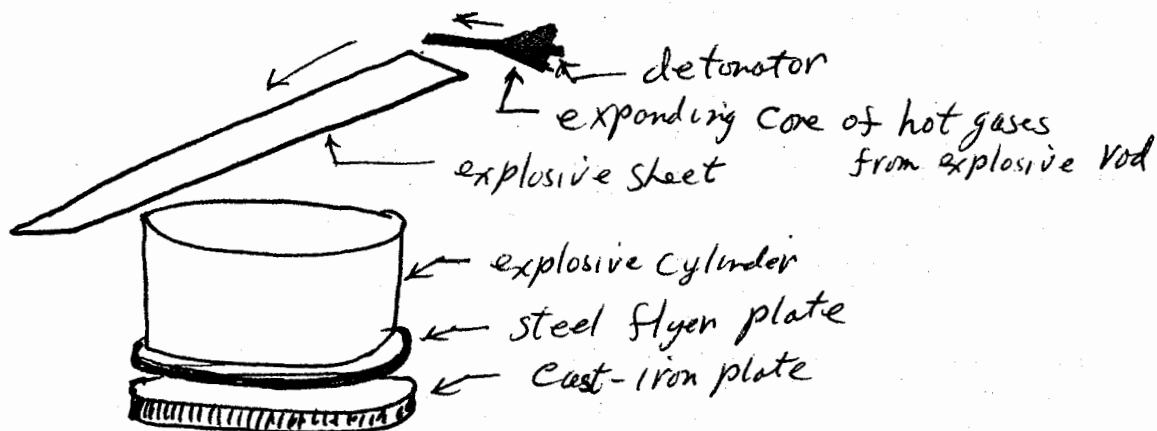 detonator
expanding cone of hot gases
from explosive rod
explosive sheet
explosive cylinder
steel flyer plate
cast-iron plate